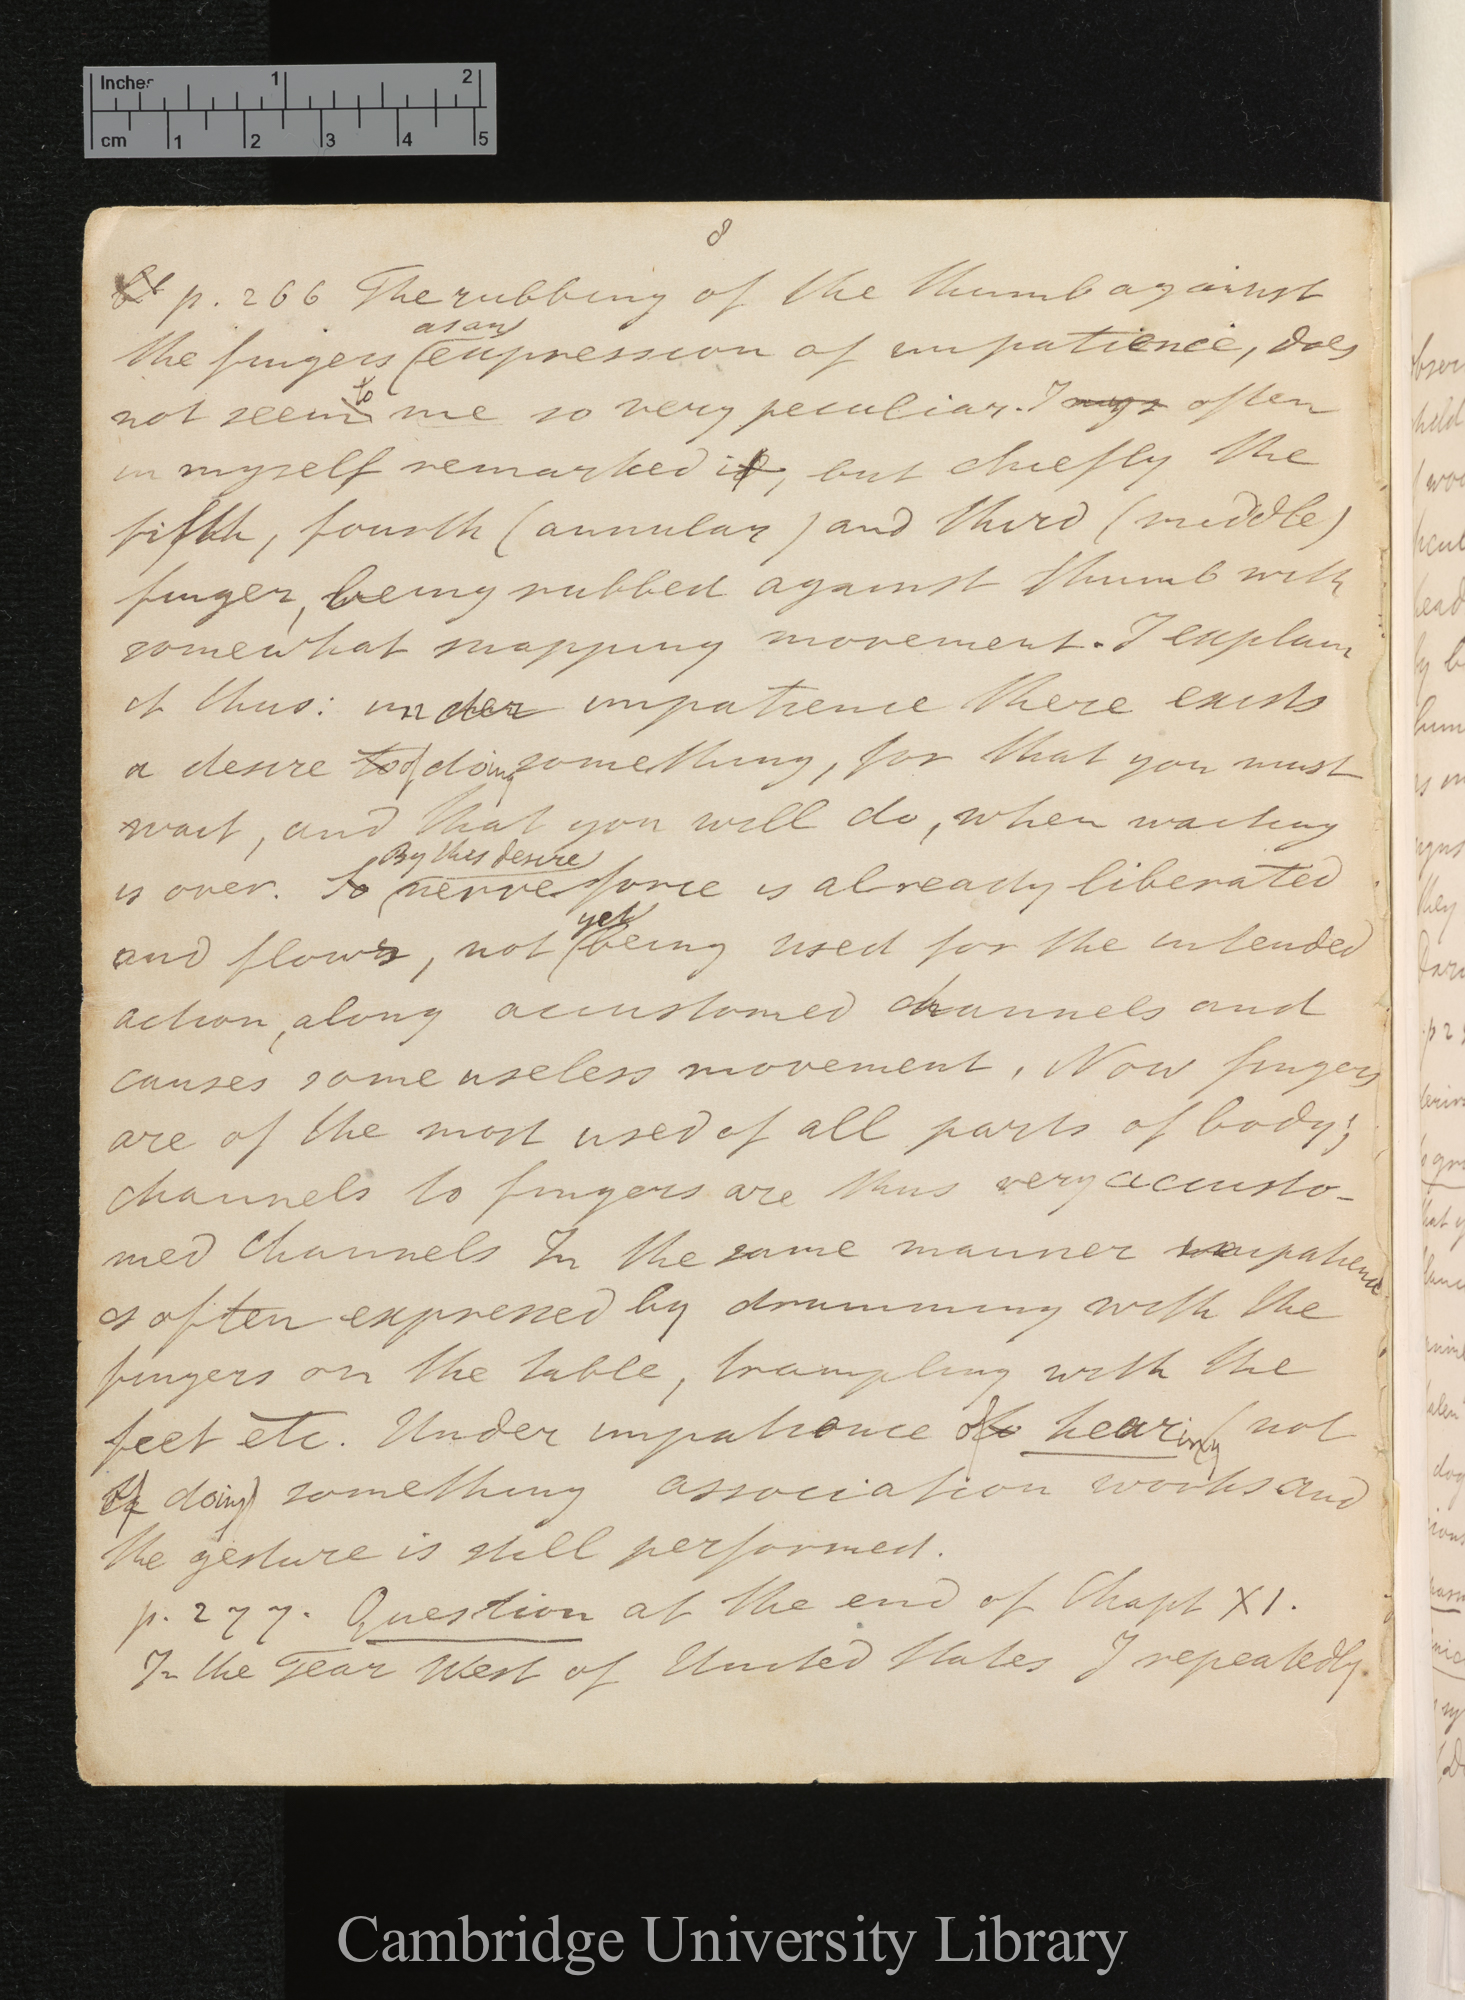 Inches 1 2
cm 1 2 3 4 5
8
p. 266 The rubbing of the thumb against
as an
the fingers (expression of impatience, does
to
not seem me so very peculiar. I often
in myself remarked it, but chiefly the
fifth, fourth (annular) and third (middle)
finger, being rubbed against thumb with
somewhat snapping movement. I explain
it thus: under impatience there exists
a desire to of doing something, for that you must
wait, and that you will do, when waiting
By this desire
is over. So (nerve force is already liberated
yet
and flows, not (being used for the intended
action, along accustomed channels and
causes some useless movement. Now fingers
are of the most used of all parts of body;
channels to fingers are thus very accusto-
med channels In the same manner impatience
is often expressed by drumming with the
fingers on the table, trampling with the
feet etc. Under impatience of to hearing (not
of doing) something association works and
the gesture is still performed.
p. 277. Question at the end of Chapt XI.
In the Far West of United States I repeatedly
Cambridge University Library